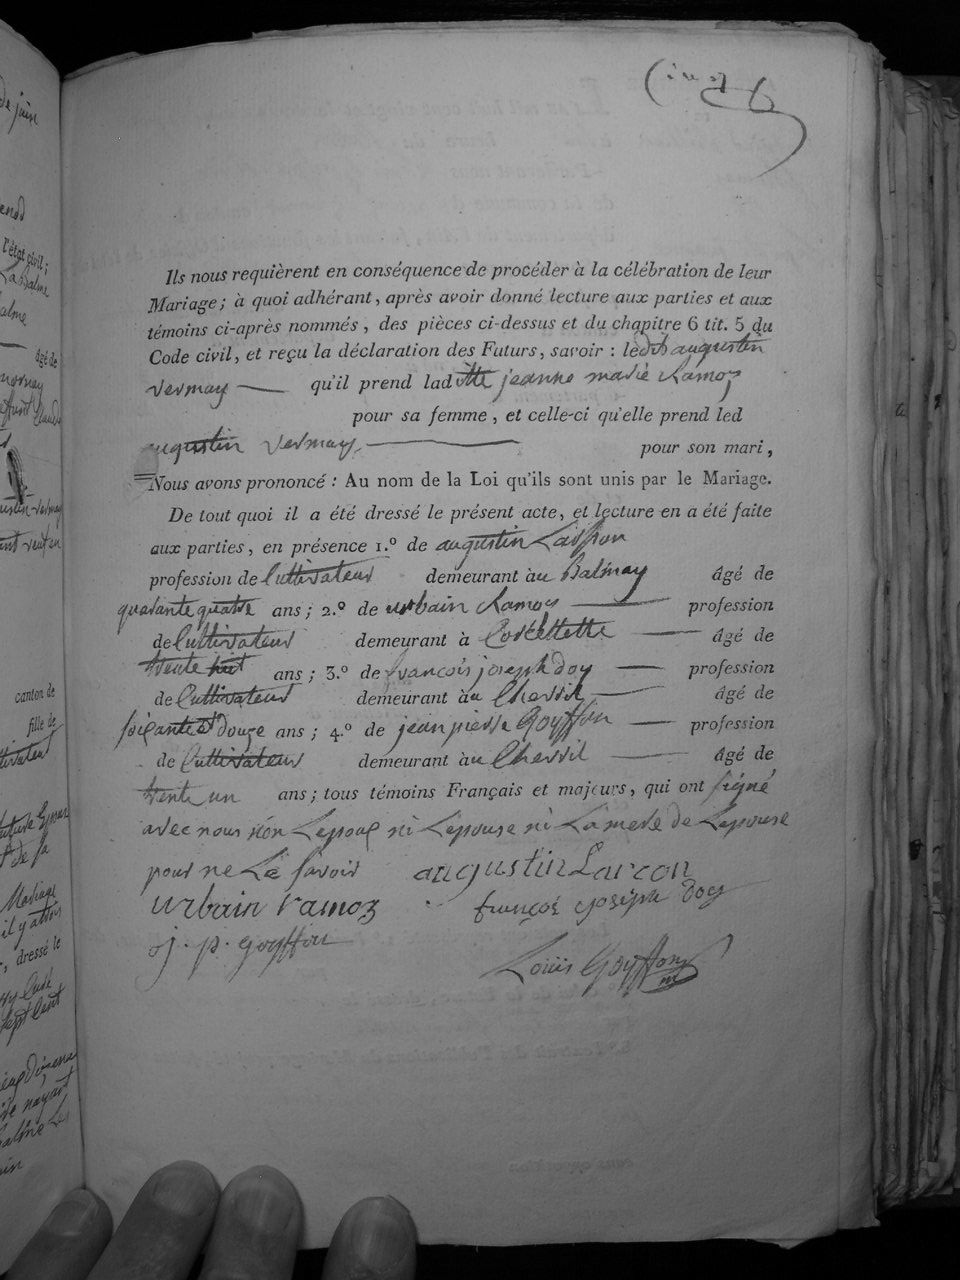 Ils nous requièrent en conséquence de procéder à la célébration de leur
Mariage; à quoi adhérant, après avoir donné lecture aux parties et aux
témoins ci-après nommés, des pièces ci-dessus et du chapitre 6 tit. 5 du
Code civil, et reçu la déclaration des Futurs, savoir : ledit augustin
vermay qu'il prend laditte jeanne marie Ramoz
pour sa femme, et celle-ci qu'elle prend led
augustin vermay pour son mari,
Nous avons prononcé : Au nom de la Loi qu'ils sont unis par le Mariage.
De tout quoi il a été dressé le présent acte, et lecture en a été faite
aux parties, en présence 1.º de augustin
profession de Cultivateur demeurant àu Balmay âgé de
quarante quatre ans; 2.º de urbain Ramoz profession
de Cultivateur demeurant à Corcellette âgé de
trente huit ans; 3.º de françois joseph doy profession
de Cultivateur demeurant àu Chevril âgé de
soiçante & douze ans; 4.º de jean pierre Goyffon profession
de Cultivateur demeurant àu Chevril âgé de
trente un ans; tous témoins Français et majeurs, qui ont signé
avec nous non Lepoux ni Lepouse ni La mere de Lepouse
pour ne Le savoir augustin Larcon
urbain ramoz françoi joseph doy
j. p. goyffon
Louis Goyffon
de juin
l'état civil;
La Balme
âgé de
canton de
fille de
Mariage
il y a
, dressé le
sept Cent